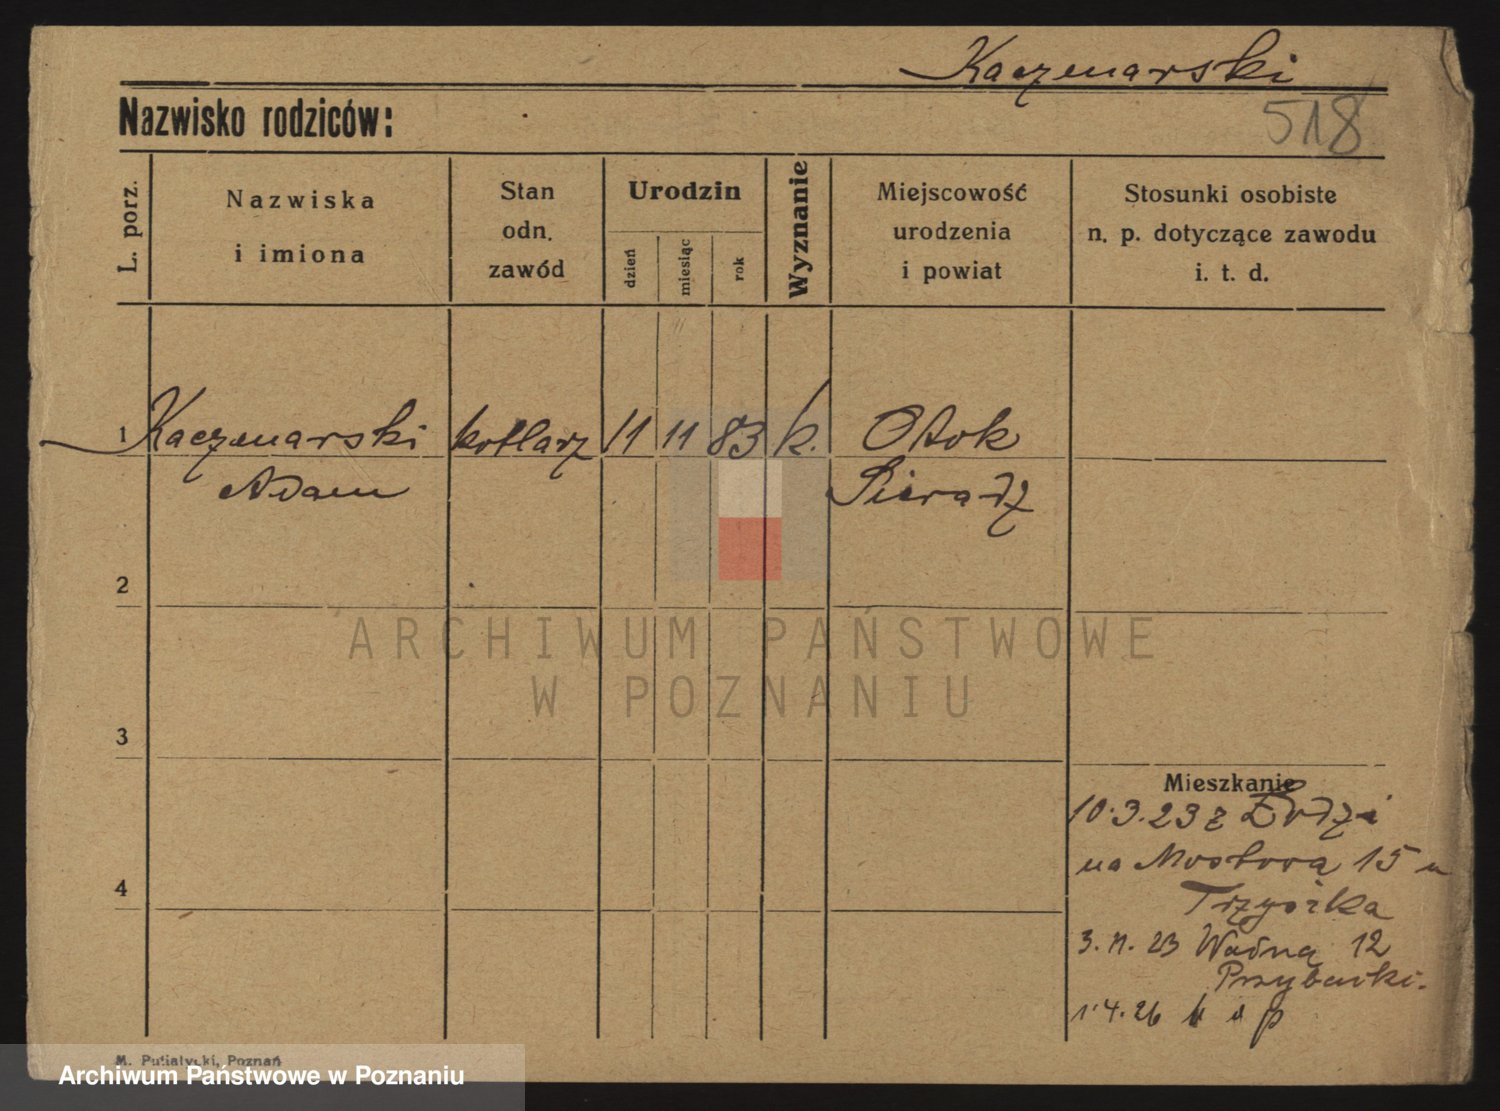 Kaczmarski
Nazwisko rodziców:
518
L. porz.
Nazwiska
i imiona
Stan
odn.
zawód
Urodzin
dzień
miesiąc
rok
Wyznanie
Miejscowość
urodzenia
i powiat
Stosunki osobiste
n. p. dotyczące zawodu
i. t. d.
1 Kaczmarski kotlarz 11 11 83 k. Otok
Adam Sieradz
2
ARCHIWUM PAŃSTWOWE
W POZNANIU
3
Mieszkanie
10.3.23 z Łodzi
na Mostową 15 u
4
3. 11. 23 Wodną 12
1.4.26
M. Putiatycki, Poznań
Archiwum Państwowe w Poznaniu